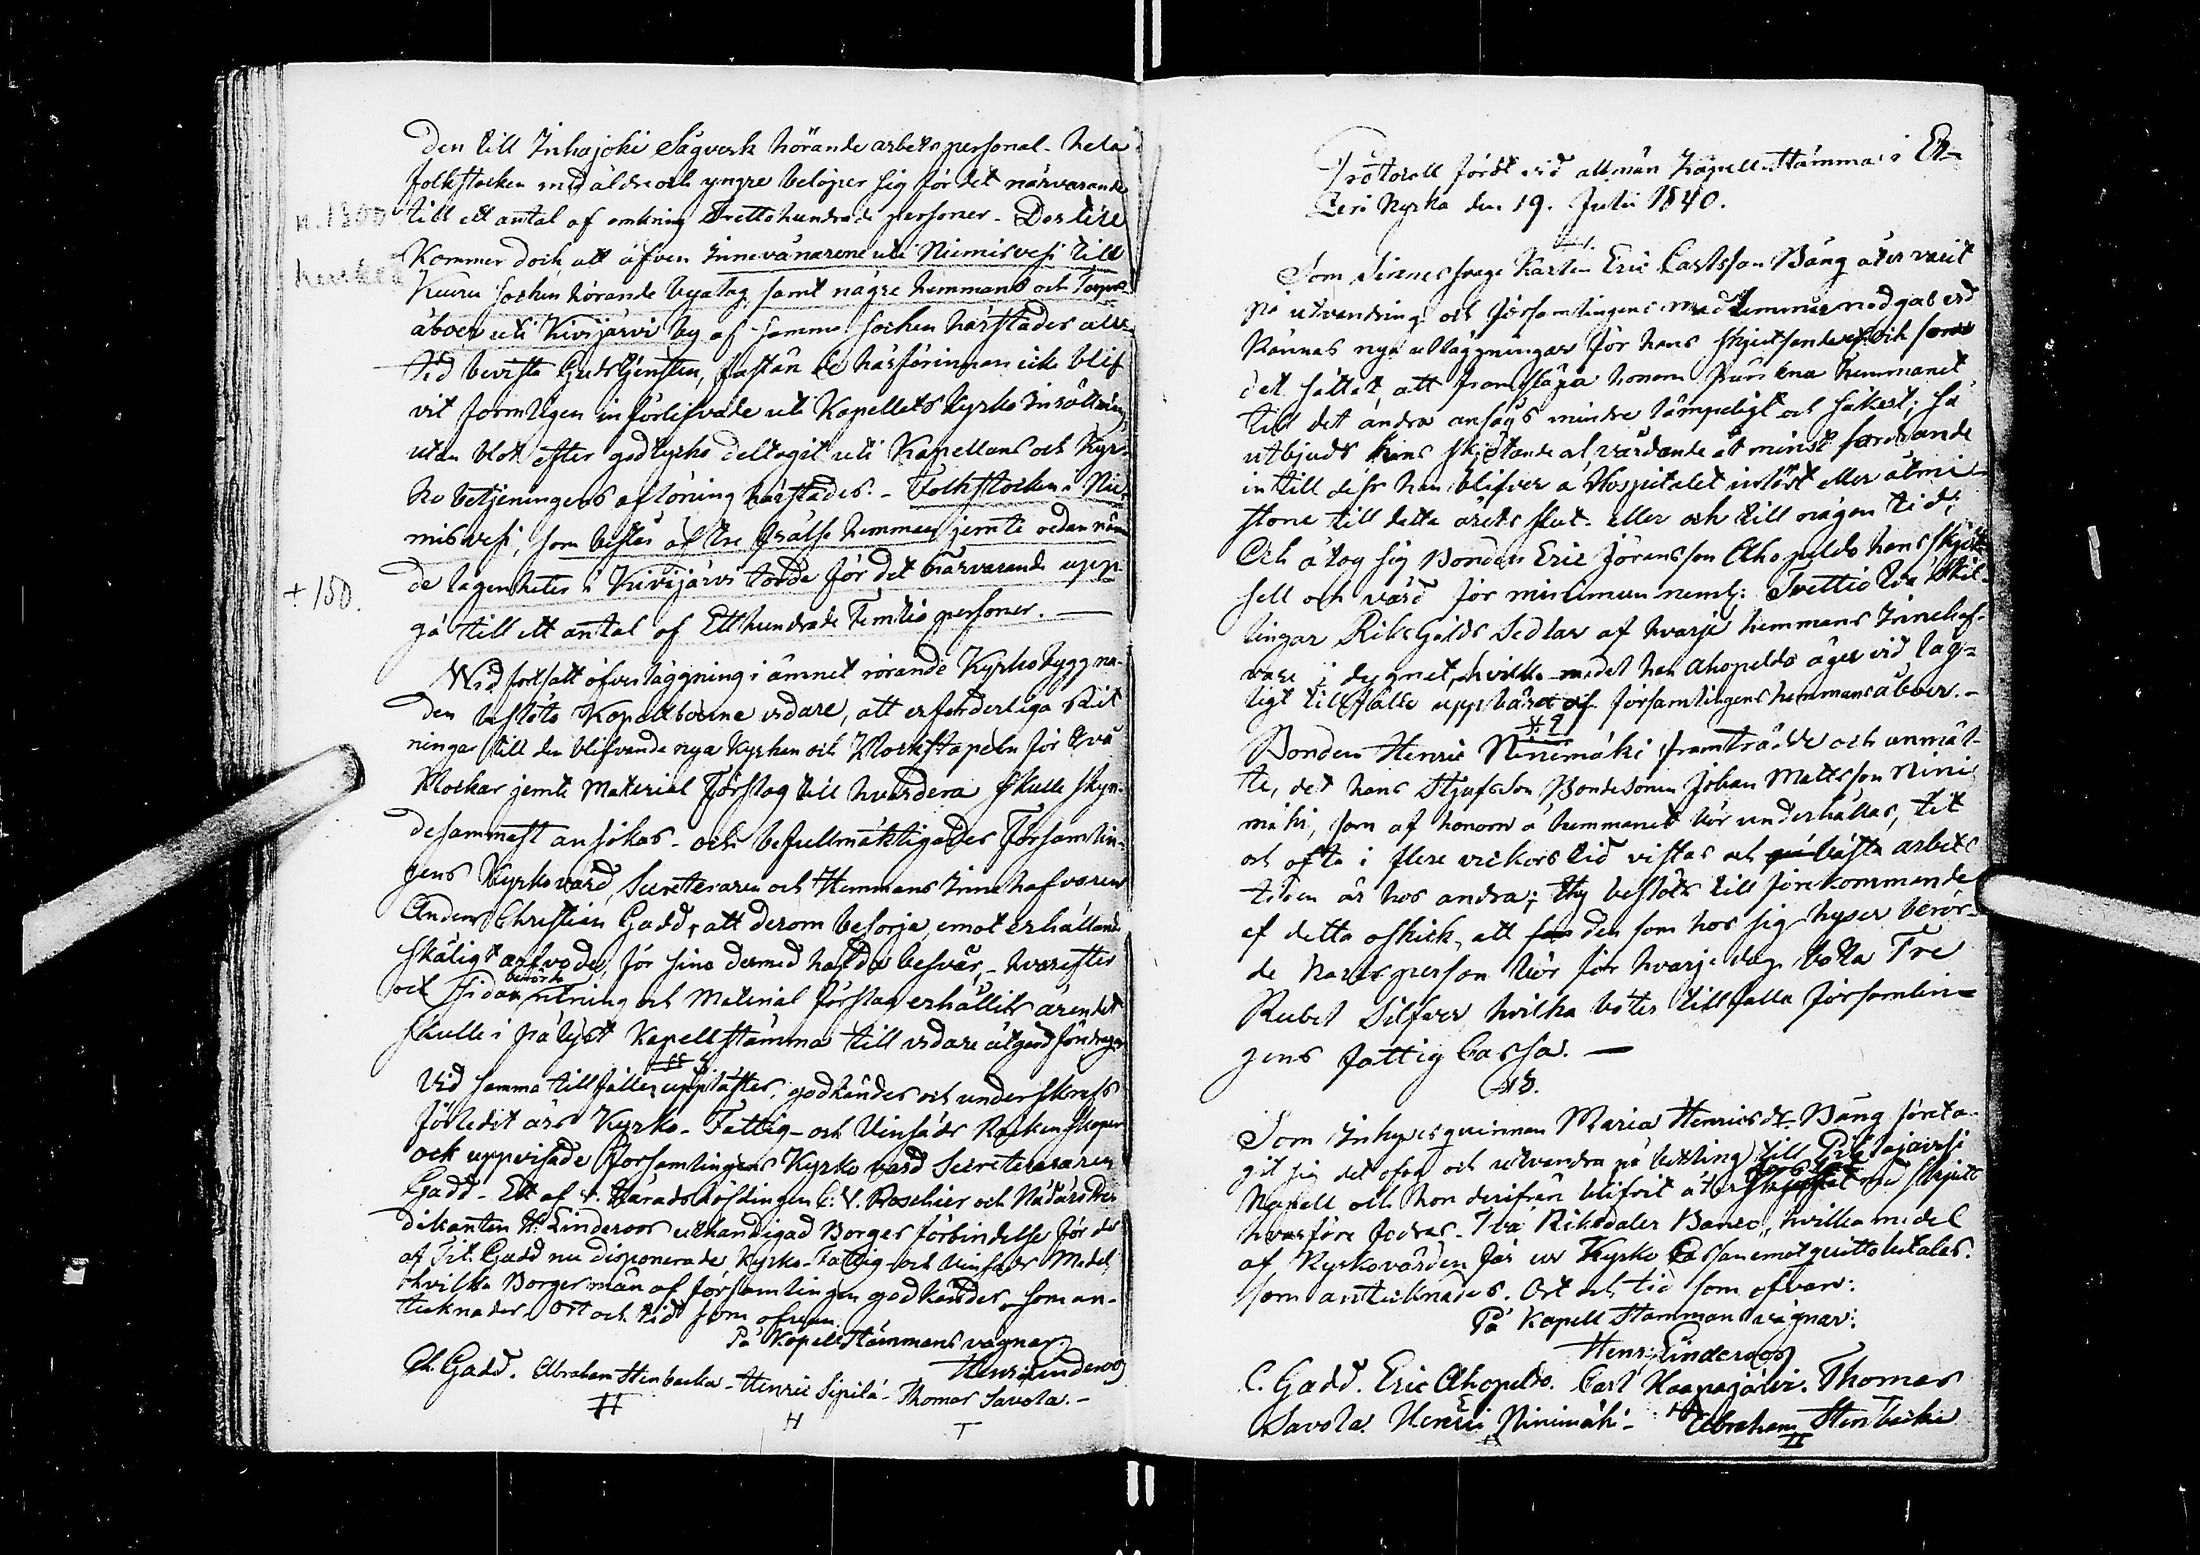 Den till Inhajoki Sågverk hörande arbets personal. hela
folkstocken med äldre och yngre belöper sig för det närvarande
n. 1300 till ett antal af omkring Trettohundrade personer. Dertill
henkeä Kommer dock att äfven Innevånarene uti Niemisvesi till
Kuuru sochen hörande byalag samt någre hemmans och torpa-
åboer uti Kivijärvi by af samma sochen härstädes all-
tid bevista Gudstjensten, fastän de härförinnan icke blif
vit formligen införlifvade uti Kapellets Kyrko Inrättning,
utan blott efter godtycke deltagit uti Kapellans och Kyr-
ko betjeningens aflöning härstädes. - Folkstocken i Nie-
misvesi, som består af tre frälse hemman jemte ofvannäm
de lägenheter i Kivijärvi torde för det närvarande upp-
+ 150. gå till ett antal af Etthundrade Femtio personer. —
Wid fortsatt öfverläggning i ämnet rörande Kyrkobyggna-
den beslöto Kapellboerne vidare, att erforderliga Rit
ningar till den blifvande nya Kyrkan och Klockstapeln för två
Klockar jemte Material Förslag till hvardera skulle skyn-
desammast ansökas - och befullmäktigades Församlin-
gens Kyrkovärd, Secreteraren och Hemmans Innehafvaren
Anders Christian Gadd, att derom besorja, emot erhållande
skäligt arfvode, för sine dermed hafde besvär, - hvarefter
och sidan behörig ritning och Material förslag erhållits ärendet
skulle i pålyst Kapellstämma till vidare åtgärd föredragas
§ 4
Vid samma tillfälle upplästes, godkändes och underskrefs
förledit års Kyrko- Fattig- och Vinsäds Räkenskaper
ock uppvisade församlingens Kyrkovärd Secreteraren
Gadd - Ett af Häradshöfdingen C. V. Roschier och Nådårs Pre-
dikanten H. Linderoos uthändigad Borges förbindelse för de
af Tit. Gadd nu disponerade Kyrko- Fattig- och Vinsäds Medel,
hvilka Borgesmän af församlingen godkändes, som an-
tecknades. Ort och tid som ofvan.
På Kapell Stämmans vägnar
Henr. Linderoos
Ch. Gadd. Abraham Stenbacka - Henric Sipilä - Thomas Savola. -
H
T
Protocoll fördt vid allmän Kapell-Stämma i Et-
zeri Kyrka den 19. Julii 1840.
§ 1.
Som Sinnessvage Karlen Eric Carlsson Bång åter varit
på utvandring och församlingens medlemmar nedgat vid
kännas nya utläggningar för hans skjutsande och som
det sättet, att framsläpa honom från ena hemmanet
till det andra ansågs mindre lämpeligt och säkert; så
utbjuds hans skjötande och vårdande åt minst fordrande
in till dess han blifver å Hospitalet inlöst eller åtmi-
stone till detta årets slut. eller och till någon tid;
Och åtog sig Bonden Eric Jöransson Ahopeldo hans skjöt-
sell och vård för minimum neml: Trettio två Skil-
lingar Riksgälds Sedlar af hvarje hemmans Innehaf-
vare i dygnet, hvilka medel han Ahopeldo äger vid lag-
ligt tillfälle uppbära af församlingens hemmansåboer. -
§ 2
Bonden Henric Ninimäki framträdde och anmäl-
te, det hans Stjufsson Bondesonen Johan Mattsson Nini
mäki, som af honom å hemmanet bör underhållas, tit
och ofta i flere veckors tid vistas och bästa arbets
tiden är hos andra; thy beslöts till förekommande
af detta oskick, att den som hos sig hyser berör-
de karlsperson bör för hvarje dag böta Tre
Rubel Silfver hvilka böter tillfalla församlin-
gens fattig Cassa. —
§ 3.
Som Inhysesqvinnan Maria Henricsdr Bång företa-
git sig det ofog och utvandra på betling till Pihlajavesi
Kapell och hon derifrån blifvit åter forslat med skjuts
hvarföre fodras. Två Riksdaler Banco, hvilka medel
af Kyrkovärden får ur Kyrko Cassan emot quitto betalas.
som antecknades. Ort och tid som ofvan:
På Kapell Stämmans vägnar:
Henr: Linderoos
C. Gadd. Eric Ahopeldo. Carl Haapajärvi. Thomas
Savola. Henric Ninimäki - Abraham Stenbacka